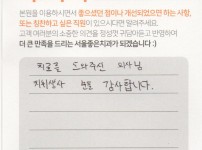 본원을 이용하시면서 좋으셨던 점이나 개선되었으면 하는 사항,
또는 칭찬하고 싶은 직원이 있으시다면 알려주세요.
고객 여러분의 소중한 의견을 정성껏 귀담아듣고 반영하여
더 큰 만족을 드리는 서울좋은치과가 되겠습니다 :)
치료를 도와주신 의사님
치위생사 분도 감사합니다.